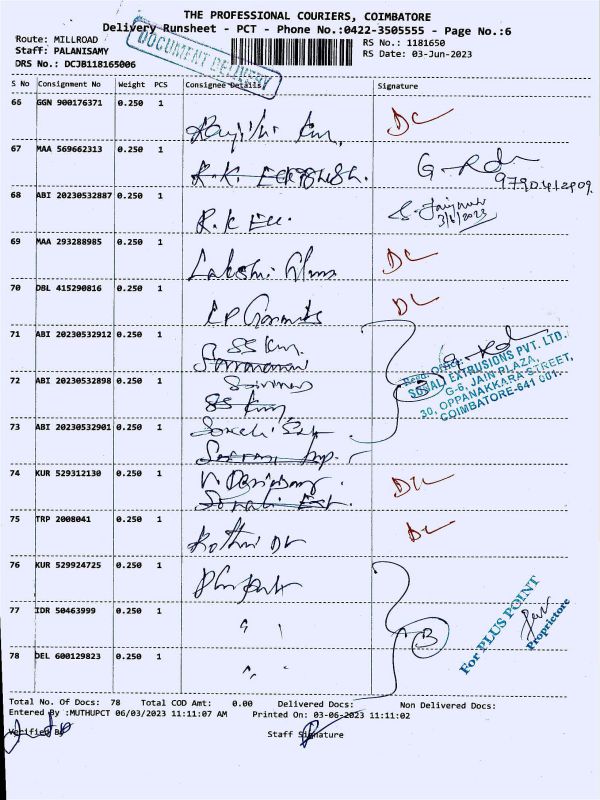 THE PROFESSIONAL COURIERS, COIMBATORE
Delivery Runsheet - PCT - Phone No.:0422-3505555 - Page No.:6
Route: MILLROAD
RS No.: 1181650
Staff: PALANISAMY
RS Date: 03-Jun-2023
DRS No.: DCJB118165006
DOCUMENT DELIVERY
S No Consignment No Weight PCS Consignee Details Signature
66 GGN 900176371 0.250 1
DC
67 MAA 569662313 0.250 1
R.K.
9790412909
68 ABI 20230532887 0.250 1
R.K Eu.
3/6/2023
69 MAA 293288985 0.250 1
Lakshmi
DC
70 DBL 415290816 0.250 1
DC
71 ABI 20230532912 0.250 1
SS
72 ABI 20230532898 0.250 1
SS
Regd. Office:
SONALI EXTRUSIONS PVT. LTD.
G-6, JAIN PLAZA,
30, OPPANAKKARA STREET,
COIMBATORE-641 001.
73 ABI 20230532901 0.250 1
74 KUR 529312130 0.250 1
Sonali
75 TRP 2008041 0.250 1
DC
76 KUR 529924725 0.250 1
77 IDR 50463999 0.250 1
3
For PLUS POINT
Proprietore
78 DEL 600129823 0.250 1
Total No. Of Docs: 78 Total COD Amt: 0.00 Delivered Docs: Non Delivered Docs:
Entered By :MUTHUPCT 06/03/2023 11:11:07 AM Printed On: 03-06-2023 11:11:02
Verified By Staff Signature